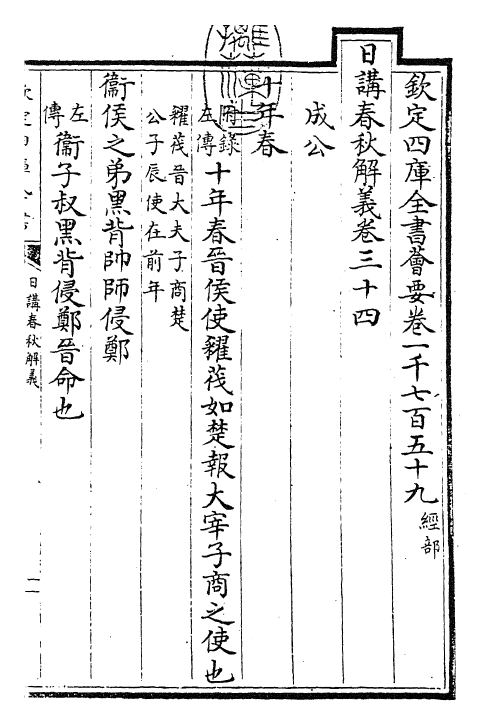 欽定四庫全書薈要卷一千七百五十九 經部
日講春秋解義卷三十四
成公
十年春
附錄左傳 十年春晉侯使糴茷如楚報大宰子商之使也
糴茷晉大夫子商楚
公子辰使在前年
衞侯之弟黑背帥師侵鄭
左傳 衞子叔黑背侵鄭晉命也
日講春秋解義
一